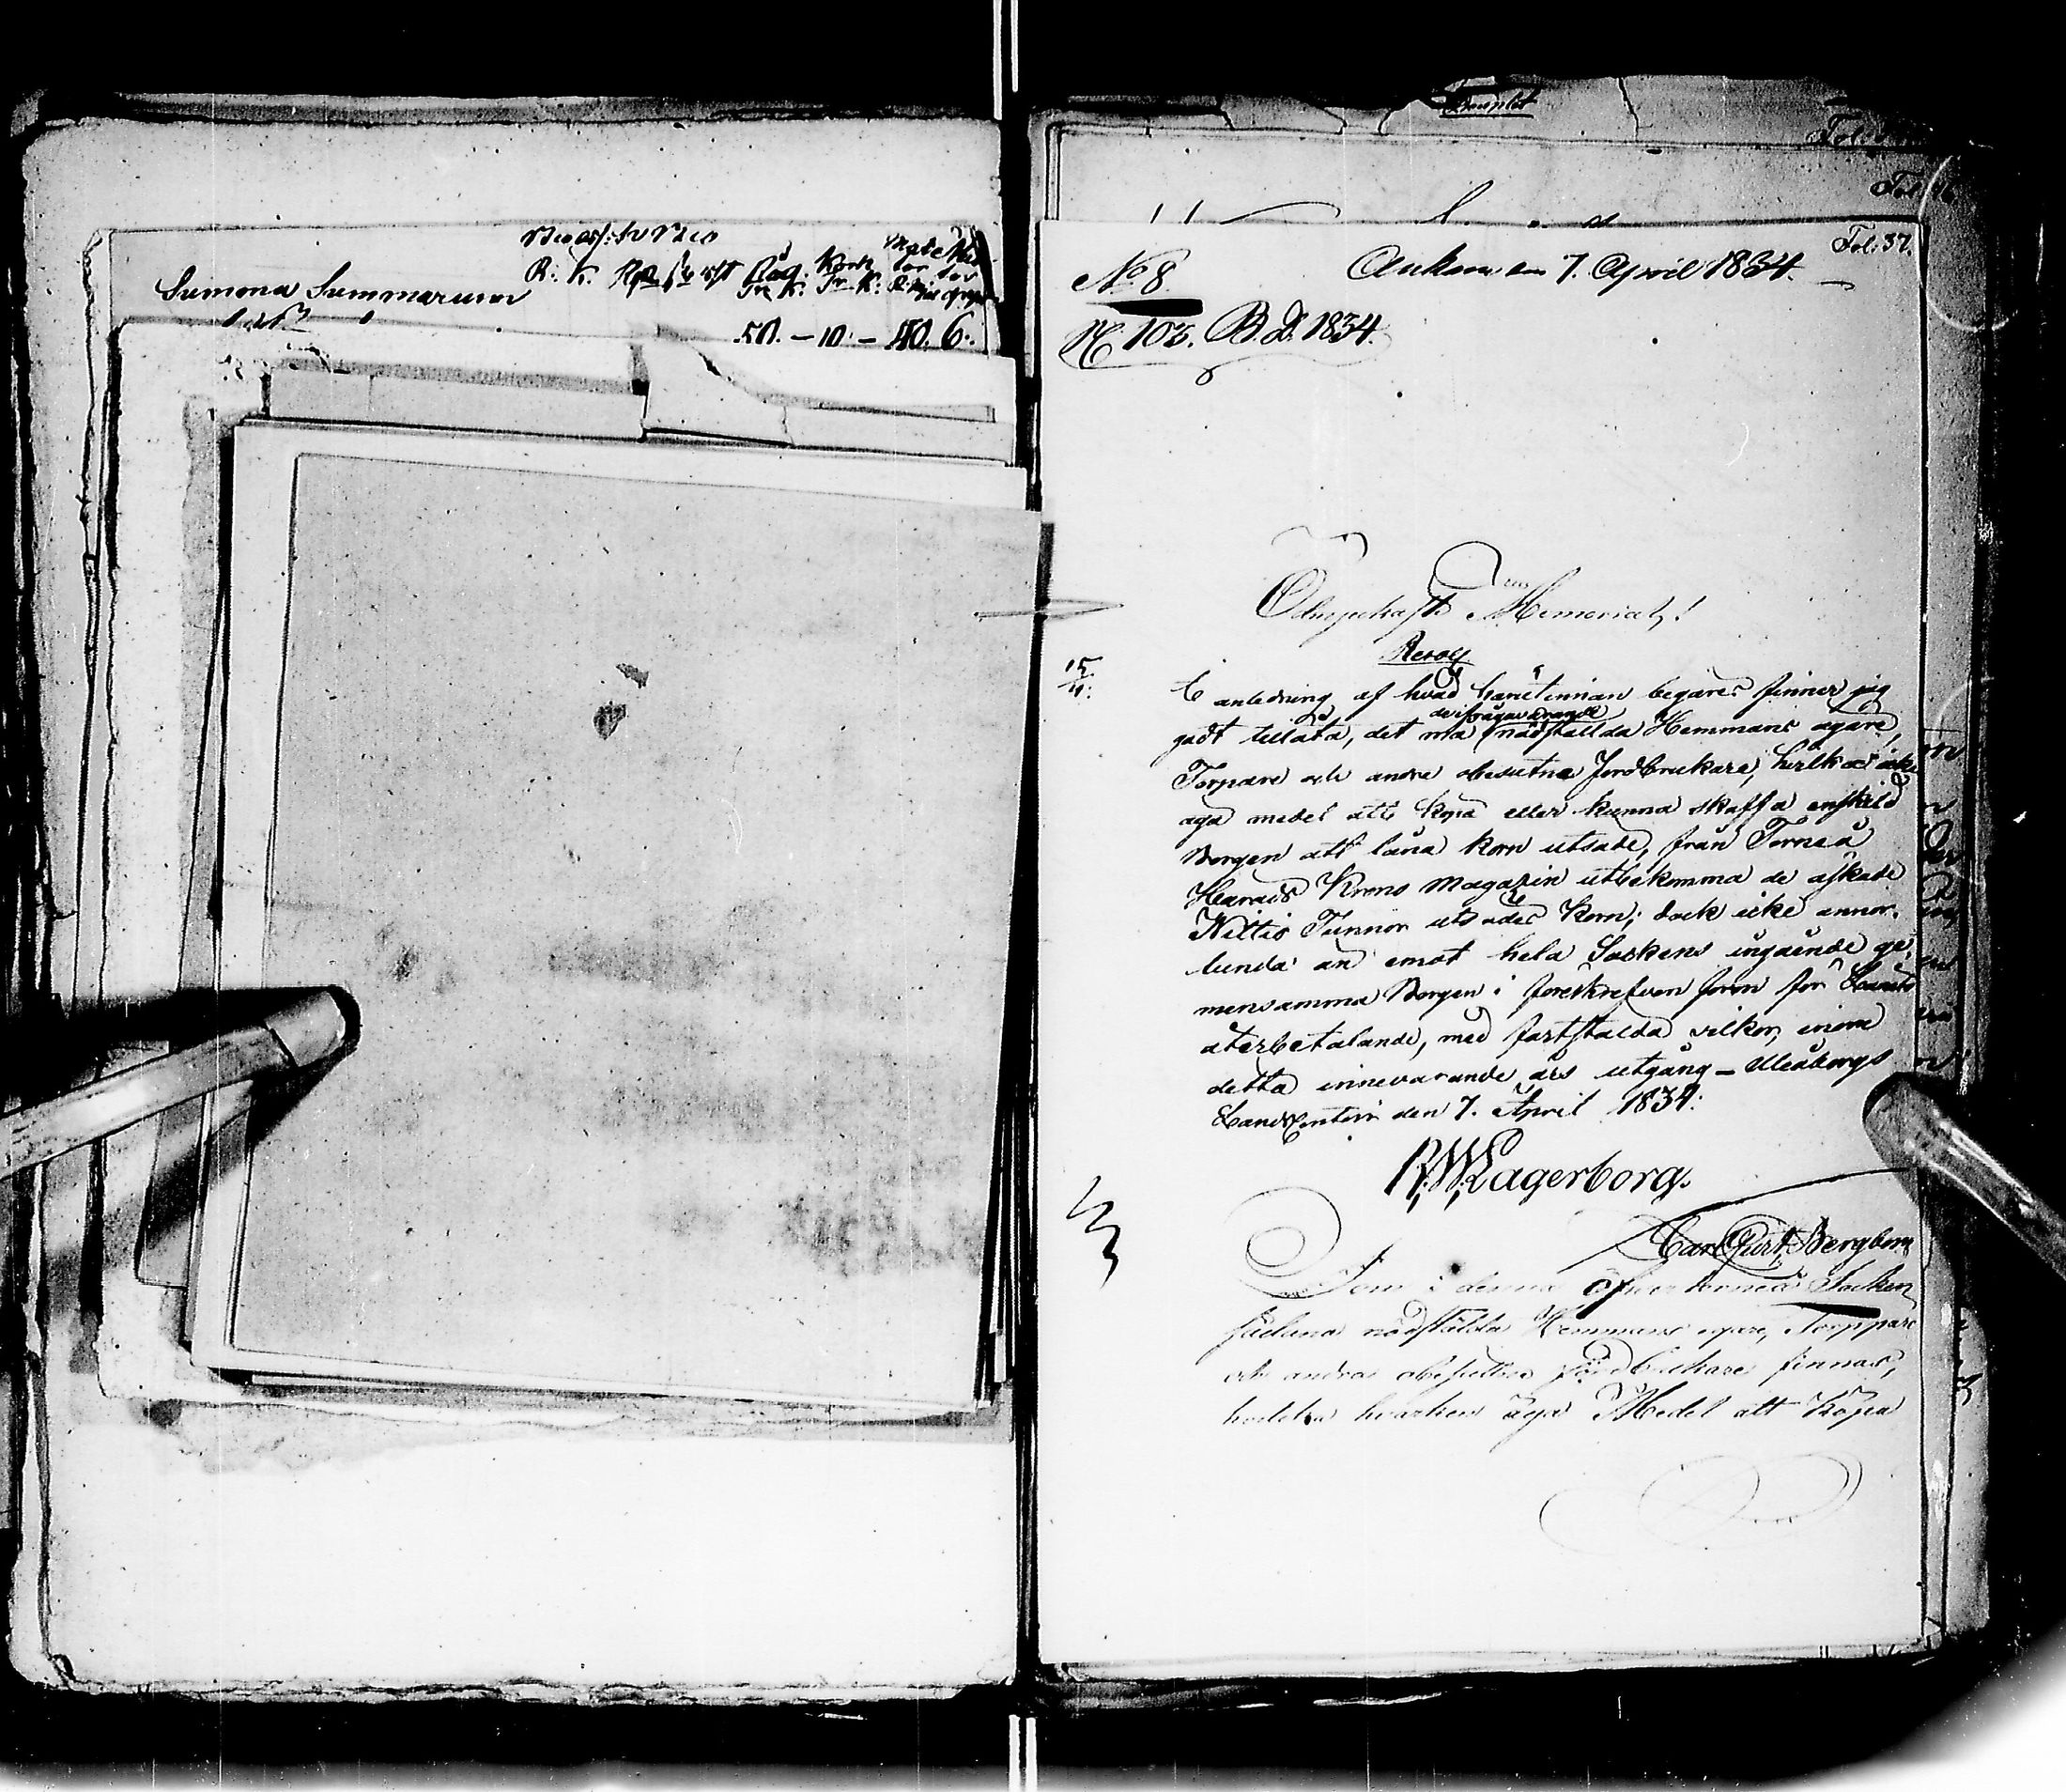 Summa Summarum
R: K.
Råg. Korn
50. – 10. – 40. 6.
Fol: 37.
No 8.
Ankom den 7. April 1834.
N 103. B.D. 1834.
Ödmjukaste Memorial!
Resol
15/4.
I anledning af hvad härutinnan begäres finner jag
godt tillåta, det må nödstälda Hemmans ägare,
Torpare och andre obesutne Jordbrukare, hvilka icke
äga medel att köpa eller kunna skaffa enskild
Borgen att låna korn utsäde, från Torneå
Härads Krono Magazin utbekomma de äskade
Nittio Tunnor utsädes Korn; dock icke annor-
lunda än emot hela Sockens ingående ge-
mensamma Borgen i föreskrefven form för Lånets
återbetalande, med fastställda vilkor, inom
detta innevarande års utgång – Uleåborgs
LandsContoir den 7. April 1834:
R.W. Lagerborg.
Carl Bergbom
Som i denna Öfver torneå Socken
sådana nödstälda Hemmans egare, Torppare
och andra obesuttna jordbrukare finnas,
hvilka hvarken äga Medel att köpa